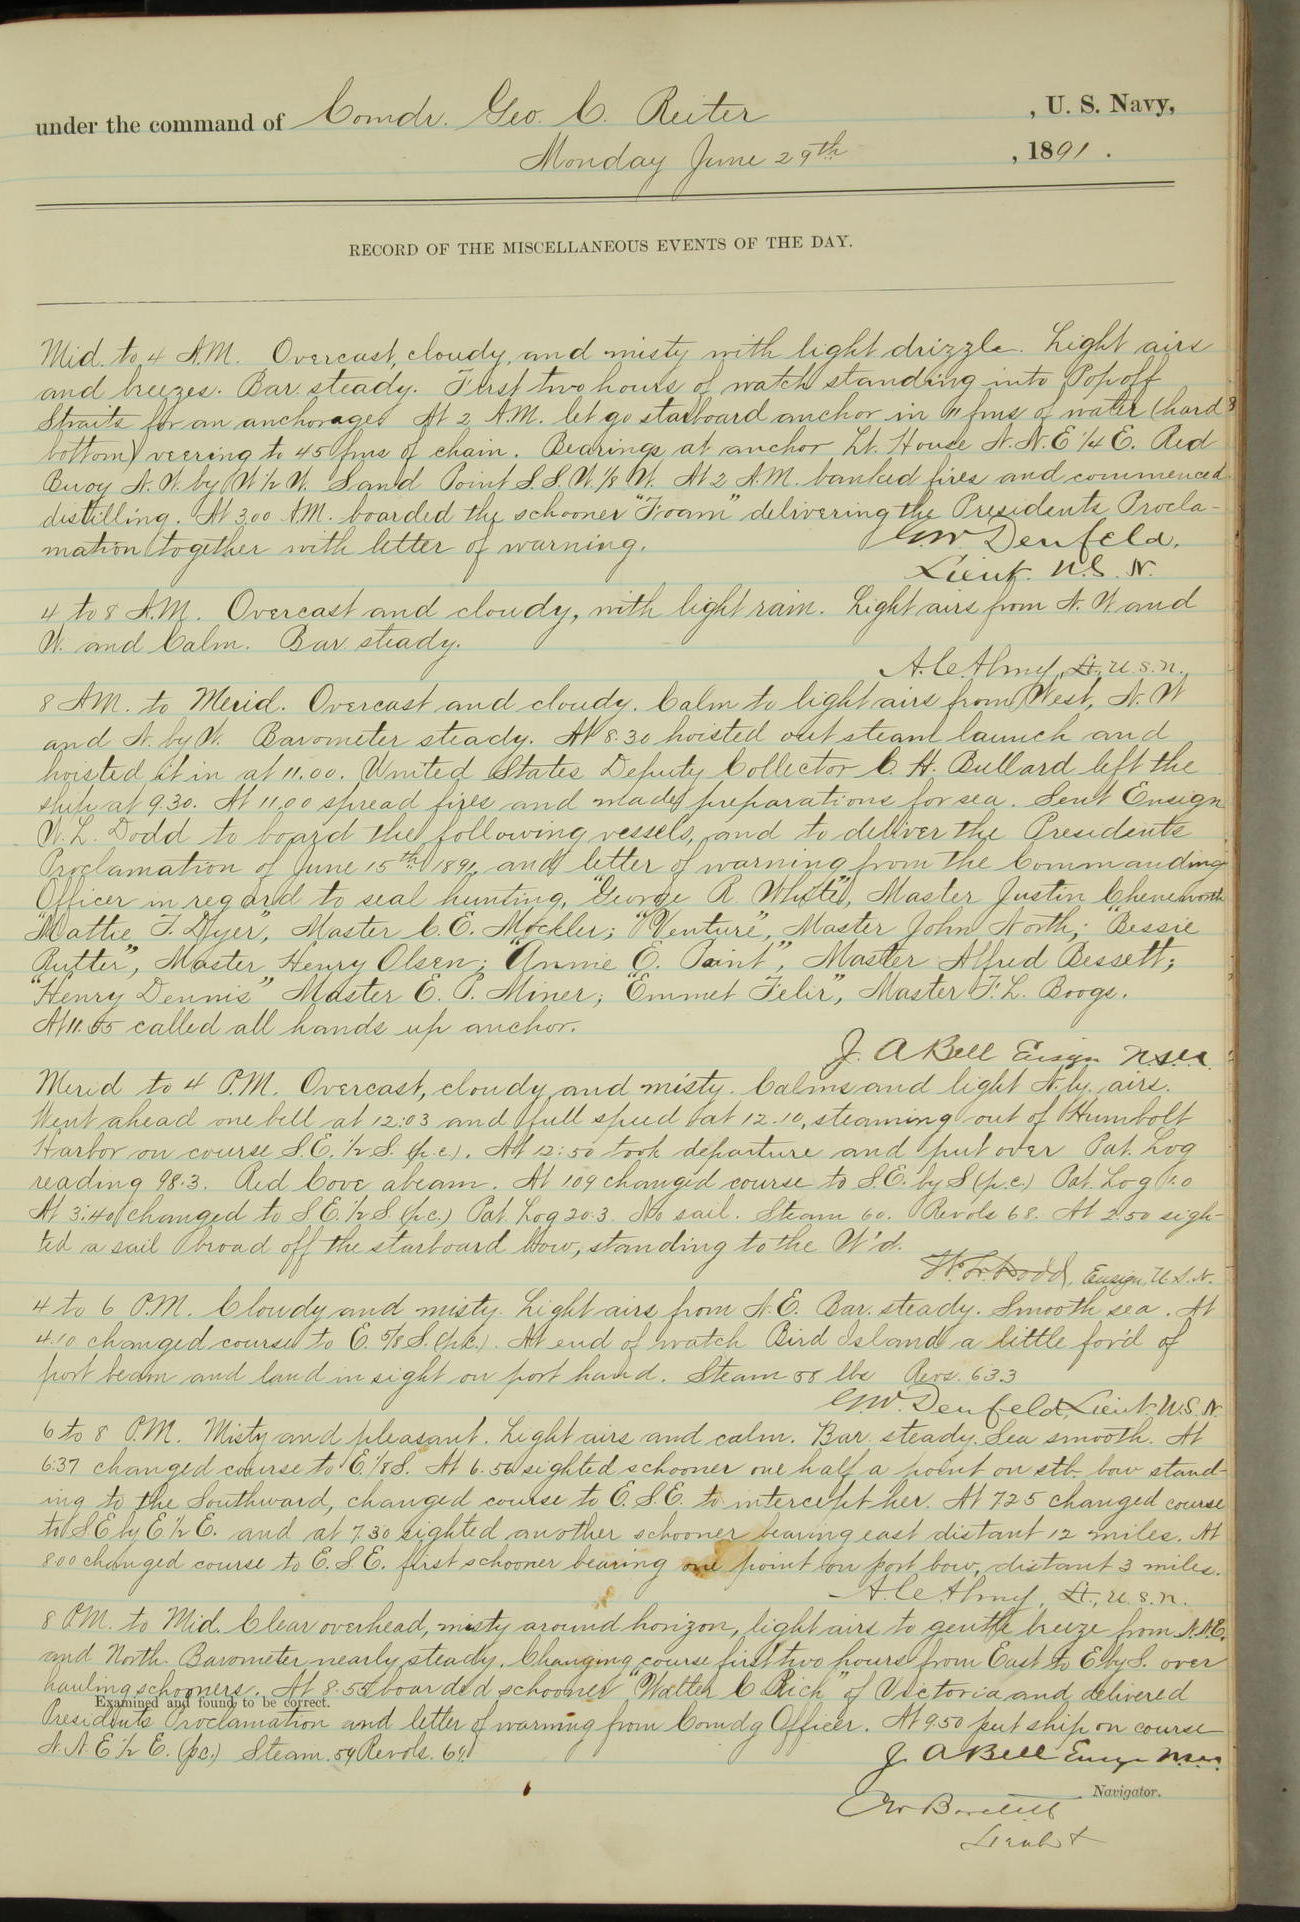 under the command of Comdr. Geo. C. Reiter , U. S. Navy,
Monday June 29th , 1891 .
RECORD OF THE MISCELLANEOUS EVENTS OF THE DAY.
Mid. to 4 A.M. Overcast, cloudy, and misty with light drizzle. Light airs
and breezes. Bar. steady. First two hours of watch standing into Popoff
Straits for an anchorage. At 2 A.M. let go starboard anchor in 11 fms of water (hard
bottom) veering to 45 fms of chain. Bearings at anchor Lt. House N.N.E 1/4 E. Red
Buoy N.W. by W 1/2 W. Sand Point S.S.W. 1/8 W. At 2 A.M. banked fires and commenced
distilling. At 3.00 A.M. boarded the schooner "Foam" delivering the Presidents Procla-
mation together with letter of warning.
G.W. Denfeld.
Lieut. U.S.N.
4 to 8 A.M. Overcast and cloudy, with light rain. Light airs from N.W. and
W. and Calm. Bar. steady.
A.C. Almy, Lt., U.S.N.
8 AM. to Merid. Overcast and cloudy. Calm to light airs from West, N.W
and N. by W. Barometer steady. At 8.30 hoisted out steam launch and
hoisted it in at 11.00. United States Deputy Collector C. H. Bullard left the
ship at 9.30. At 11.00 spread fires and made preparations for sea. Sent Ensign
W.L. Dodd to board the following vessels, and to deliver the Presidents
Proclamation of June 15th 1891, and letter of warning from the Commanding
Officer in regard to seal hunting, "George R. White", Master Justin Cheneworth
"Mattie T. Dyer", Master C.E. Mockler; "Venture", Master John North; "Bessie
Rutter", Master Henry Olsen; "Annie E. Paint", Master Alfred Bessett;
"Henry Dennis" Master E. P. Miner; "Emmet Felix", Master F.L. Boogs.
At 11.55 called all hands up anchor.
J. A Bell Ensign U.S.N.
Merid to 4 P.M. Overcast, cloudy and misty. Calms and light N.ly. airs.
Went ahead one bell at 12:03 and full speed at 12.10, steaming out of Humbolt
Harbor on course S.E. 1/2 S. (p.c.). At 12:50 took departure and put over Pat. Log
reading 98.3. Red Cove abeam. At 109 changed course to S.E. by S (p.c.) Pat. Log 1.0
At 3:40 changed to S.E. 1/2 S. (p.c.) Pat. Log 20.3. No sail. Steam 60. Revols 68. At 2.50 sigh-
ted a sail broad off the starboard bow, standing to the W'd.
W.L. Dodd, Ensign, U.S.N.
4 to 6 P.M. Cloudy and misty. Light airs from N.E. Bar. steady. Smooth sea. At
4.10 changed course to E. 5/8 S. (p.c.). At end of watch Bird Island a little for'd of
port beam and land in sight on port hand. Steam 58 lbs Revs. 63.3
G.W. Denfeld, Lieut. U.S.N.
6 to 8 P.M. Misty and pleasant. Light airs and calm. Bar. steady. Sea smooth. At
6.37 changed course to E. 1/8 S. At 6.50 sighted schooner one half a point on stb. bow stand-
ing to the Southward, changed course to E.S.E. to intercept her. At 7.25 changed course
to S E by E 1/2 E. and at 7.30 sighted another schooner bearing east distant 12 miles. At
8.00 changed course to E.S.E. first schooner bearing one point on port bow, distant 3 miles.
A.C. Almy, Lt., U.S.N.
8 P.M. to Mid. Clear overhead, misty around horizon, light airs to gentle breeze from N.N.E.
and North. Barometer nearly steady. Changing course first two hours from East to E by S. over
hauling schooners. At 8.55 boarded schooner "Walter C Rich" of Victoria and delivered
Examined and found to be correct.
Presidents Proclamation and letter of warning from Comdg Officer. At 9.50 put ship on course
N.N.E 1/2 E. (p.c.) Steam. 59 Revols.
J. A Bell Ensign U.S.N.
Navigator.
Lieut